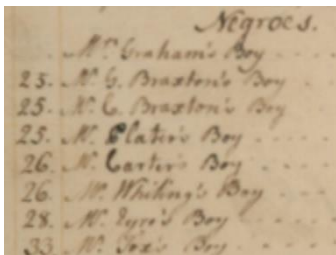 Negroes.
Mr. Graham's Boy
25. Mr. G. Braxton's Boy
25. Mr. C. Braxton's Boy
25. Mr. Plater's Boy
26. Mr. Carter's Boy
26. Mr. Whiting's Boy
28. Mr. Eyre's Boy
33 Mr. Fox's Boy